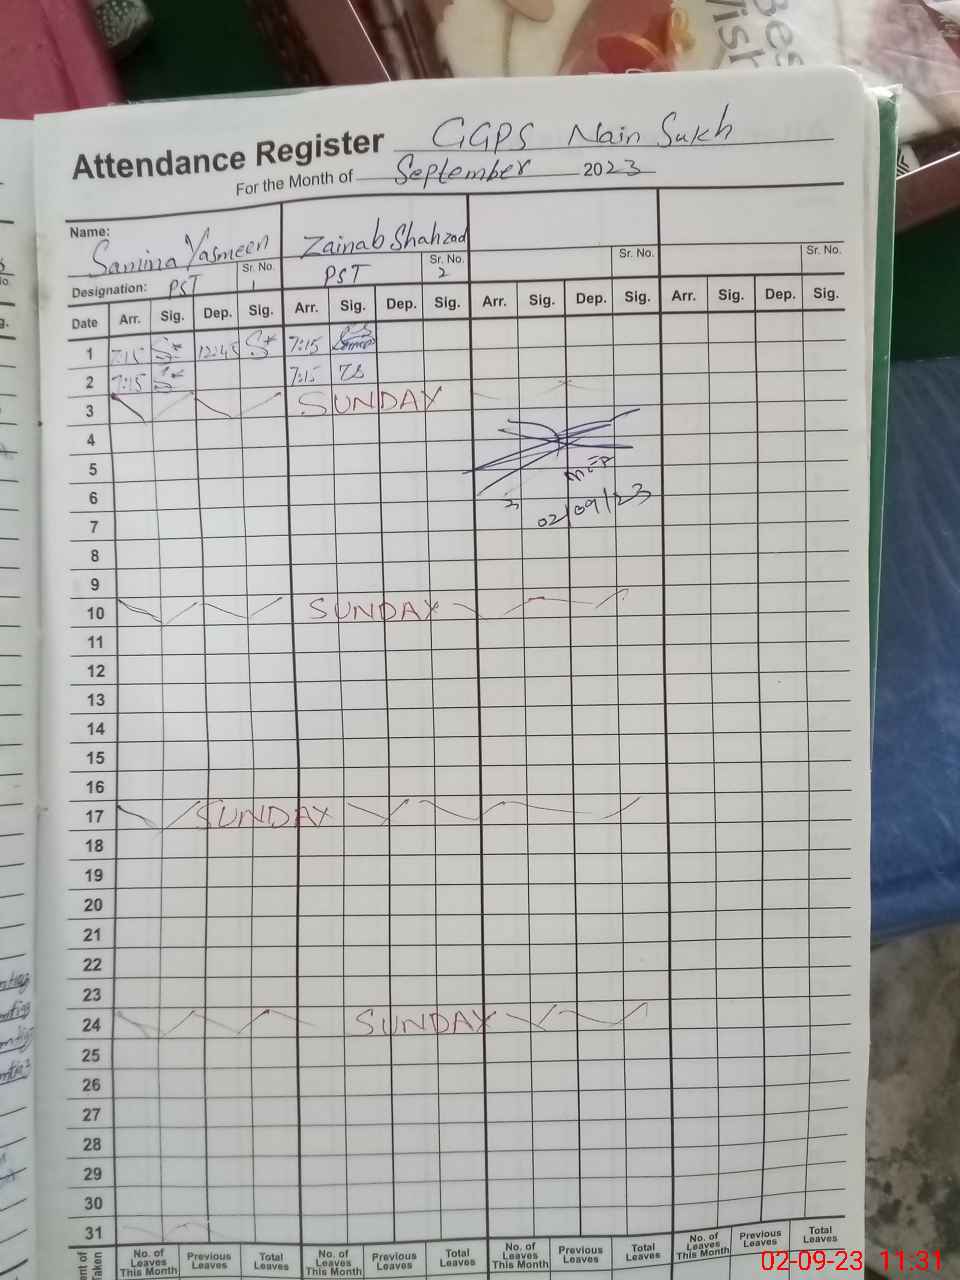 Best
Wish
Attendance Register GGPS Nain Sukh
For the Month of September 2023
Name: Samina Yasmeen Zainab Shahzad
Designation: PST Sr. No. 1 PST Sr. No. 2 Sr. No. Sr. No.
Date Arr. Sig. Dep. Sig. Arr. Sig. Dep. Sig. Arr. Sig. Dep. Sig. Arr. Sig. Dep. Sig.
1 7:15 12:45 7:15
2 7:15 7:15 ZS
3 SUNDAY
4
5
6
7 02/09/23
8
9
10 SUNDAY
11
12
13
14
15
16
17 SUNDAY
18
19
20
21
22
23
24 SUNDAY
25
26
27
28
29
30
31
No. of Leaves This Month Previous Leaves Total Leaves No. of Leaves This Month Previous Leaves Total Leaves No. of Leaves This Month Previous Leaves Total Leaves No. of Leaves This Month Previous Leaves Total Leaves
Taken
02-09-23 11:31